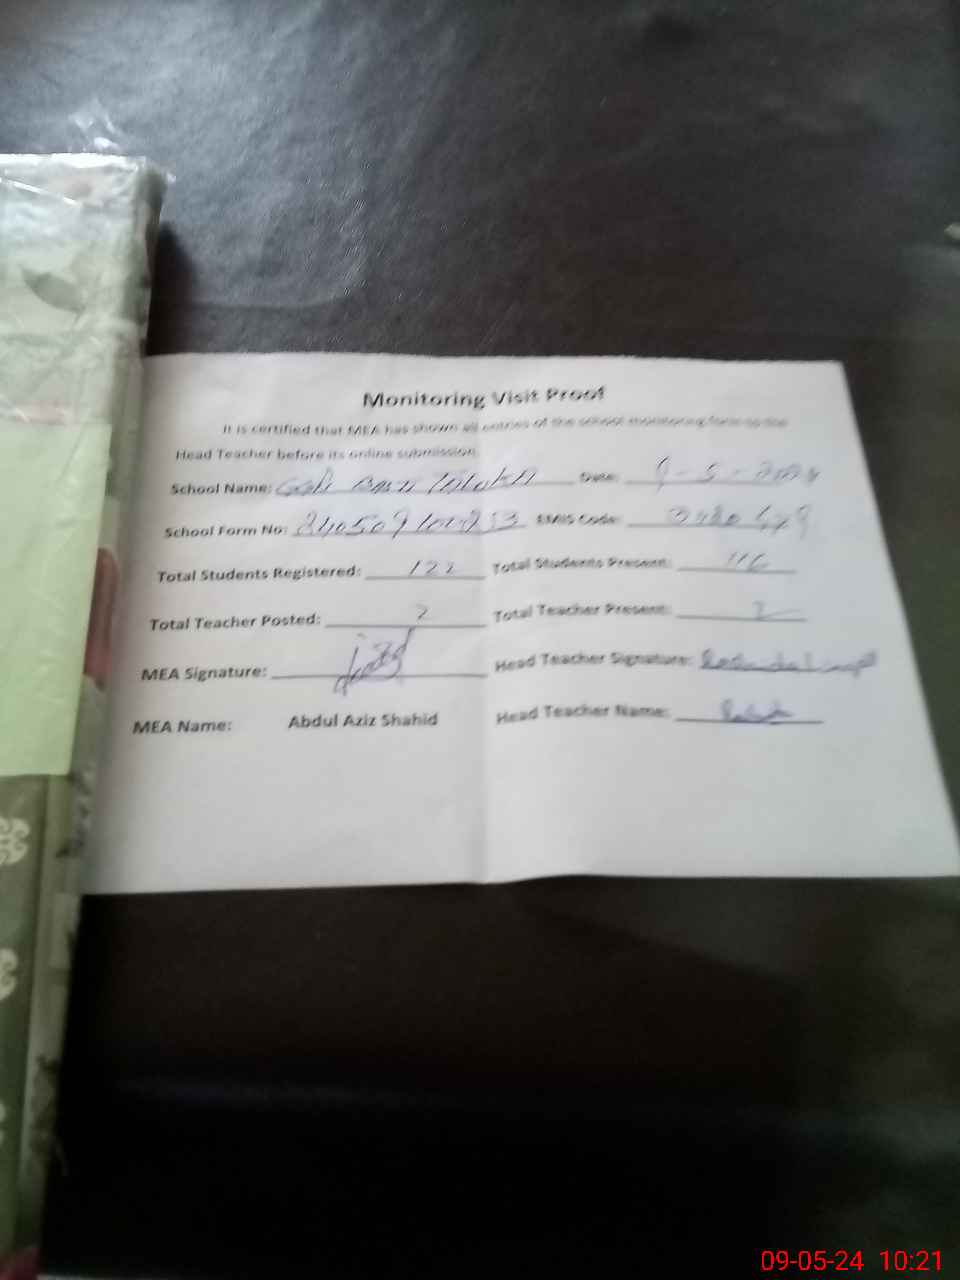 Monitoring Visit Proof
It is certified that MEA has shown all entries of the school monitoring form to the
Head Teacher before its online submission.
School Name: Date: 9-5-2024
School Form No: EMIS Code:
Total Students Registered: 122 Total Students Present: 116
Total Teacher Posted: 2 Total Teacher Present: 2
MEA Signature: Head Teacher Signature:
MEA Name: Abdul Aziz Shahid Head Teacher Name:
09-05-24 10:21